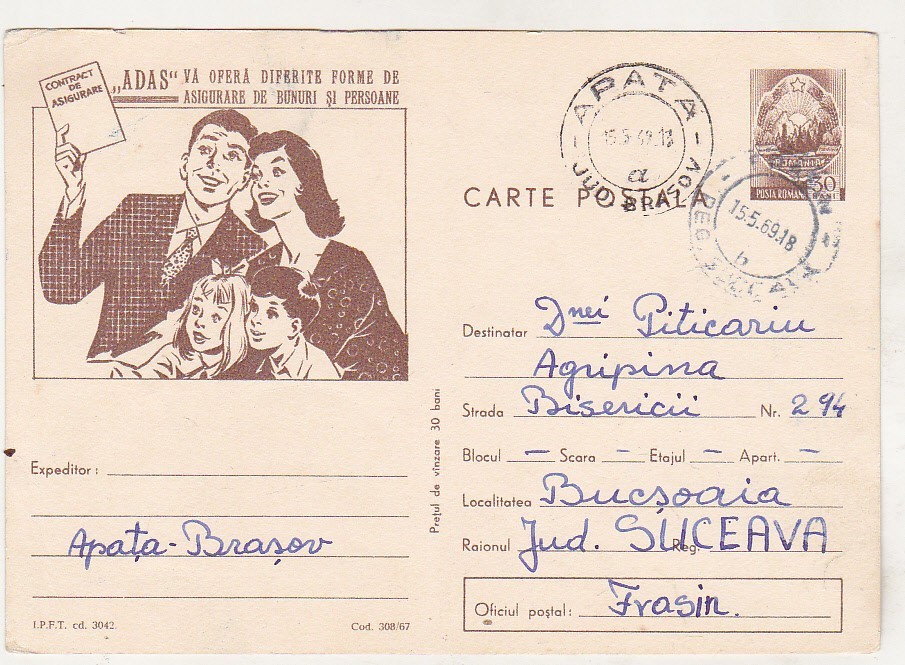 CONTRACT
DE
ASIGURARE
„ADAS“ VĂ OFERĂ DIFERITE FORME DE
ASIGURARE DE BUNURI ȘI PERSOANE
APAȚA
15.5.69.18
a
JUD. BRAȘOV
ROMANIA
POSTA ROMANA 30
BANI
CARTE POȘTALĂ
15.5.69.18
b
REG. SUCEAVA
Destinatar Dnei Piticariu
Agripina
Strada Bisericii Nr. 294
Blocul — Scara – Etajul – Apart. –
Localitatea Bucșoaia
Raionul Jud. SUCEAVA Reg.
Oficiul poștal: Frasin.
Prețul de vînzare 30 bani
Expeditor:
Apața-Brașov
I.P.F.T. cd. 3042.
Cod. 308/67